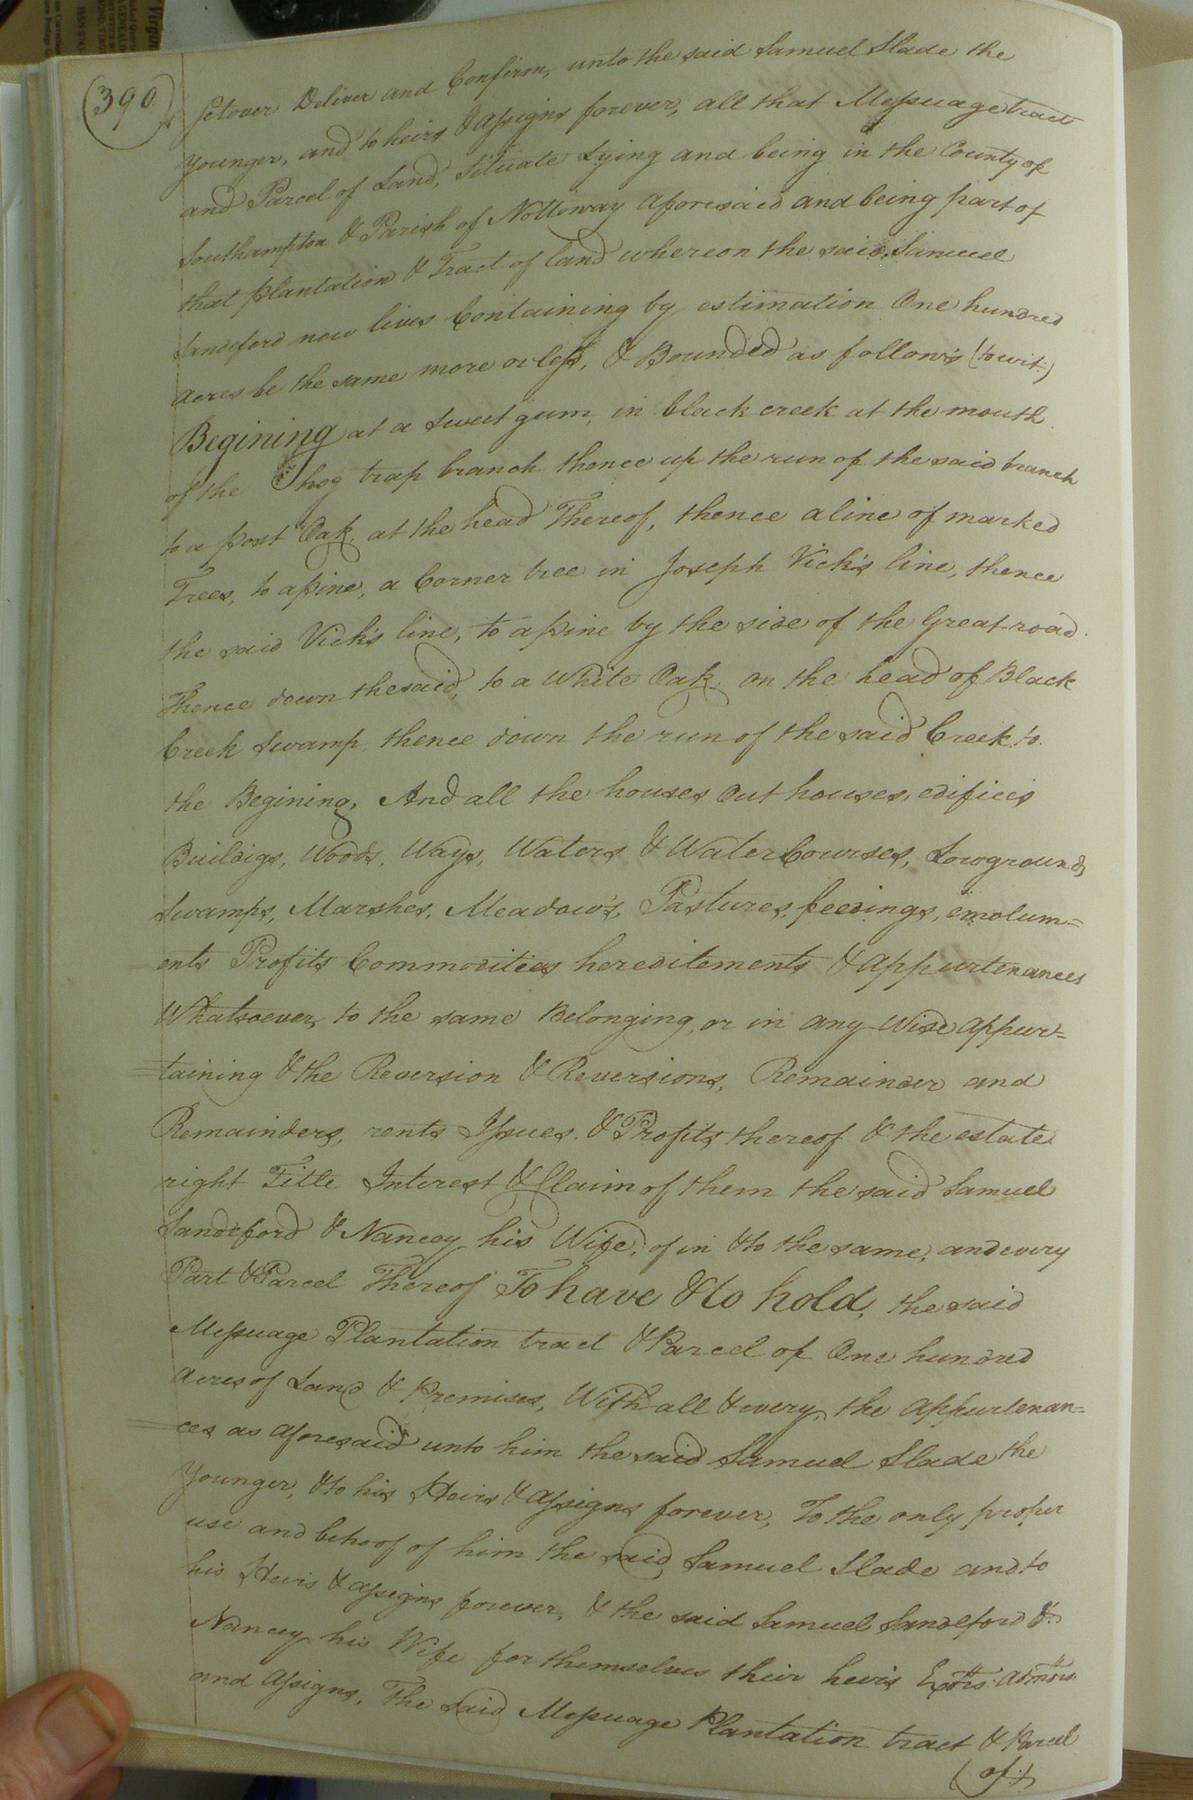 (390)
Setover Deliver and Confirm, unto the said Samuel Slade the
Younger, and to heirs & Assigns forever, all that Messuage tract
and Parcel of Land, Situate Lying and being in the County of
Southampton & Parish of Nottoway aforesaid and being part of
that plantation & Tract of land whereon the said Samuel
Sandeford now lives Containing by estimation One hundred
acres be the same more or less, & Bounded as follow's (towit)
Begining at a sweet gum, in black creek at the mouth
of the hog trap branch thence up the run of the said branch
to a post Oak, at the head Thereof, thence a line of marked
Trees, to a pine, a Corner tree in Joseph Vick's line, thence
the said Vick's line, to a pine by the side of the Great-road
Thence down the said, to a White Oak on the head of Black
Creek Swamp, thence down the run of the said Creek to
the Begining, And all the houses Out houses, edifices
Buildigs, Woods, Ways, Waters & Water Courses, Lowgrounds,
Swamps, Marshes, Meadow's, Pastures, feedings, emolum=
ents Profits Commodities hereditements & appurtenances
Whatsoever, to the same Belonging, or in any Wise appur=
=taining & the Reversion & Reversions, Remainder and
Remainders, rents Issues & Profits thereof & the estate
right Title Interest & Claim of them the said Samuel
Sandeford & Nancey his Wife, of in & to the same, and every
Part & Parcel Thereof To have & to hold, the said
Messuage Plantation tract & Parcel of One hundred
Acres of Land & Premises, With all & every, the appurtenan=
=ces as aforesaid unto him the said Samuel Slade the
Younger, & to his Heirs & Assigns forever, To the only proper
use and behoof of him the said Samuel Slade and to
his Heirs & assigns forever, & the said Samuel Sandeford &
Nancey his Wife for themselves their heirs Exors: admors:
and Assigns, The said Messuage Plantation tract & Parcel
(of)
Virgin